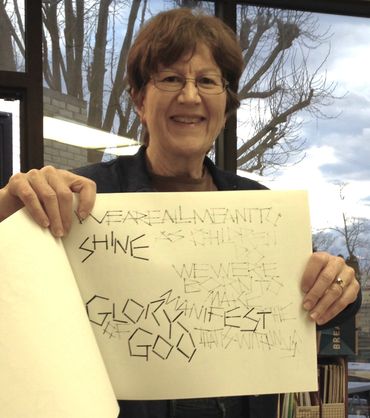 WE ARE ALL MEANT TO
SHINE AS CHILDREN
DO
WE WERE
BORN TO
MAKE
GLORY MANIFEST THE
OF
GOD THAT IS WITHIN US